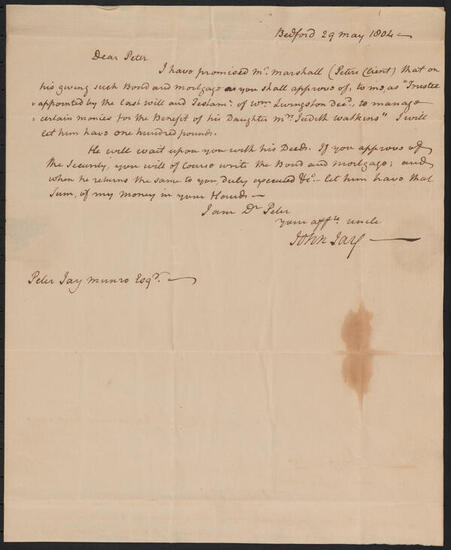 Bedford 29 May 1804 —
Dear Peter
I have promised Mr. Marshall (Peter's Client) that on
his giving such Bond and mortgage as you shall approve of, to me, as "Trustee
"appointed by the Last will and Testamt. of Wm. Livingston Decd. to manage
"certain monies for the Benefit of his Daughter Mrs. Judith Watkins" I will
let him have one hundred pounds.
He will wait upon you with his Deeds. If you approve of
the Security, you will of Course write the Bond and mortgage; and
when he returns the same to you duly executed &c. — let him have that
Sum, of my money in your Hands —
I am Dr. Peter
your affte. uncle
John Jay —
Peter Jay Munro Esqr. —